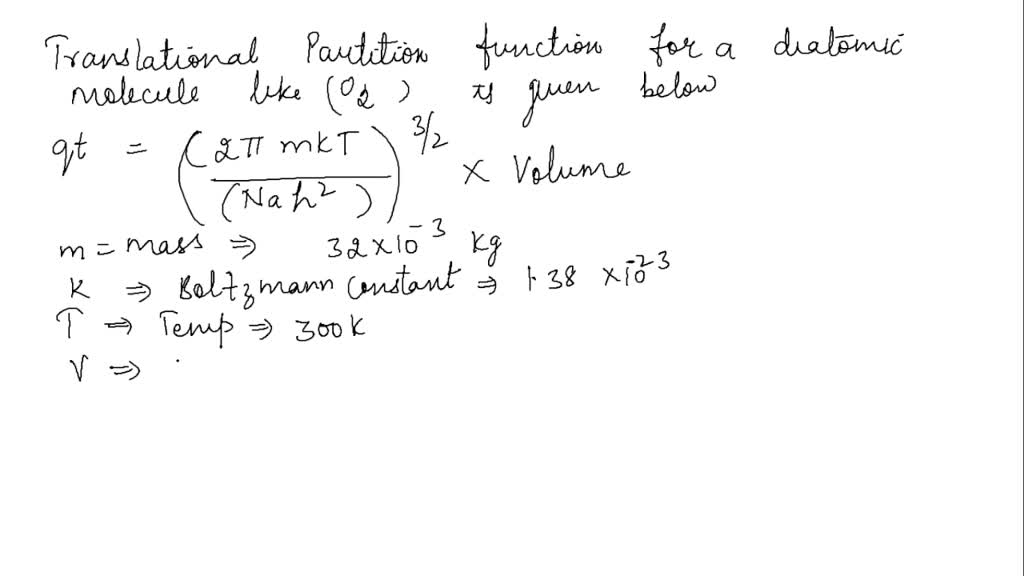 Translational Partition function for a diatomic
molecule like (O2) is given below
qt = ((2π mkT)/(Na h²))^3/2 × Volume
m = mass ⇒ 32×10^-3 kg
K ⇒ Boltzmann constant ⇒ 1.38 ×10^-23
T ⇒ Temp ⇒ 300K
V ⇒